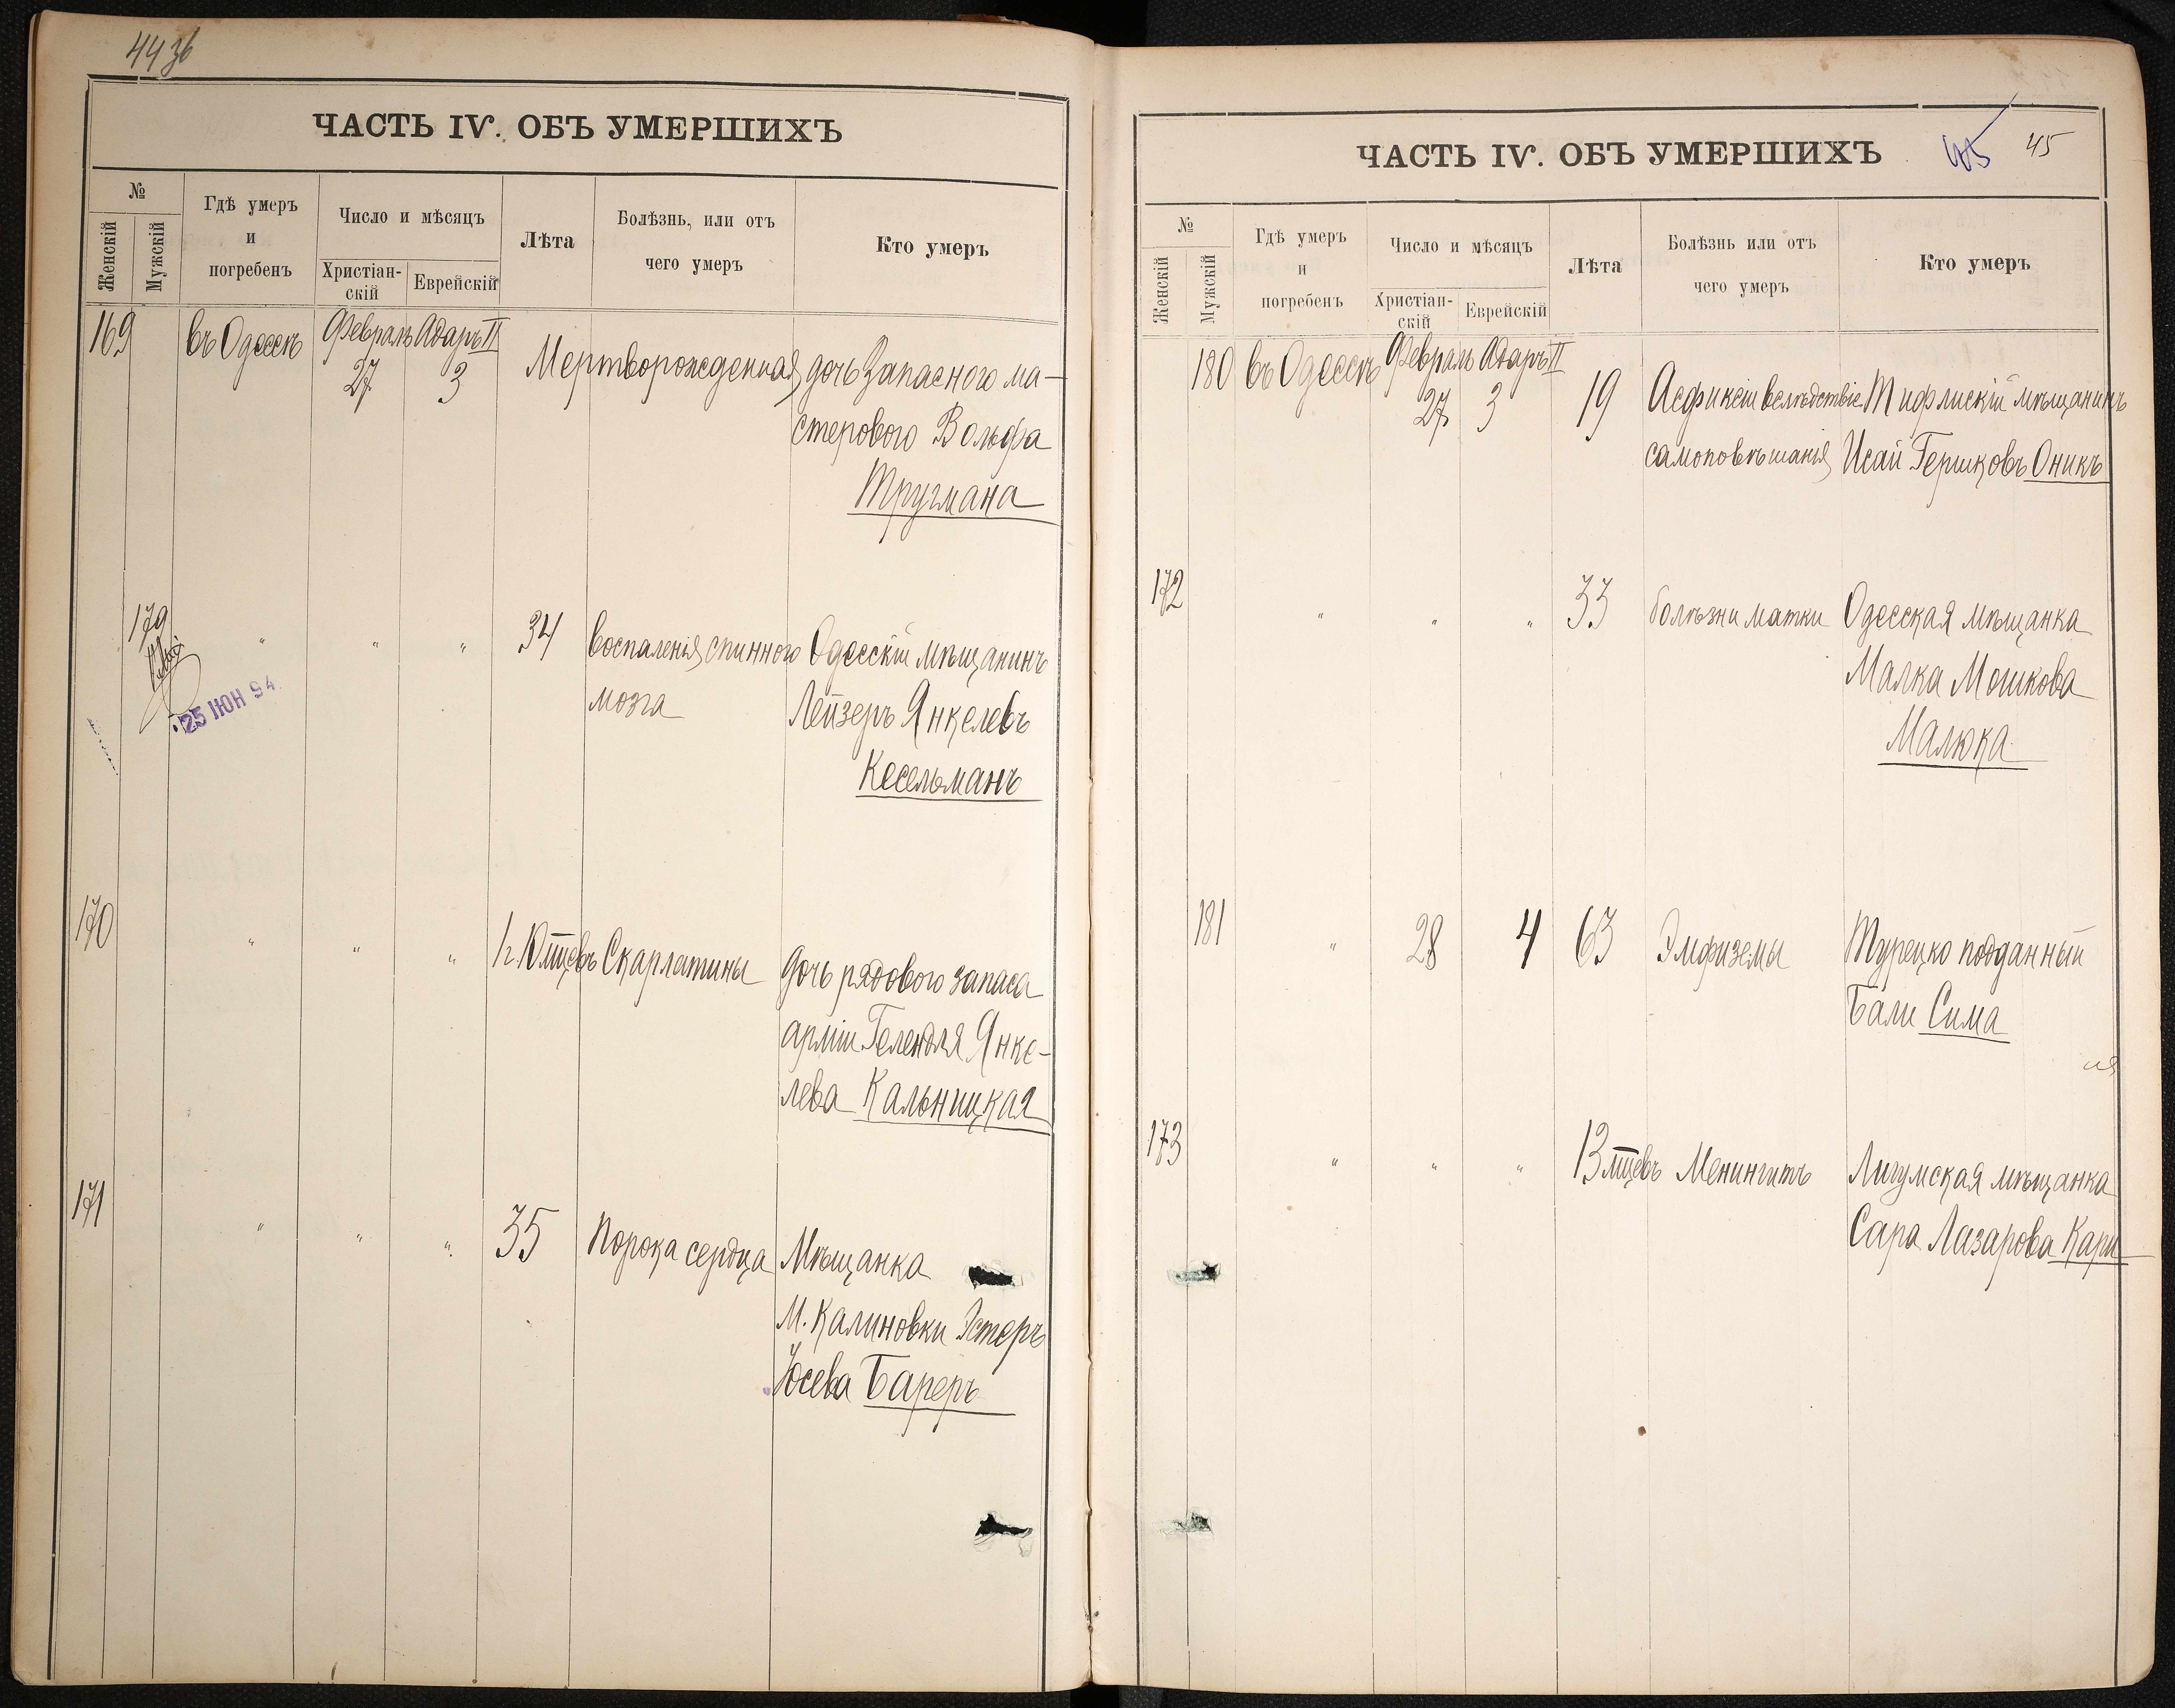 44 об
ЧАСТЬ IV. ОБЪ УМЕРШИХЪ
№
Женскій
Мужскій
Гдѣ умеръ
и
погребенъ
Число и мѣсяцъ
Христіан-
скій
Еврейскій
Лѣта
Болѣзнь, или отъ
чего умеръ
Кто умеръ
169 въ Одессѣ Февраль Адаръ II
27 3 Мертворожденная дочь Запасного ма-
стерового Вольфа
Тругмана
179 " " " 34 Воспаленія спинного Одесскій мѣщанинъ
мозга Лейзеръ Янкелевъ
Кесельманъ
25 ІЮН 94
170 " " " 1 г. 10 мцевъ Скарлатины дочь рядового запаса
арміи Гелендля Янке-
лева Кальницкая
171 " " " 35 Порока сердца Мѣщанка
М. Калиновки Эстеръ
Юсева Бареръ
ЧАСТЬ IV. ОБЪ УМЕРШИХЪ
45 45
№
Женскій
Мужскій
Гдѣ умеръ
и
погребенъ
Число и мѣсяцъ
Христіан-
скій
Еврейскій
Лѣта
Болѣзнь или отъ
чего умеръ
Кто умеръ
180 въ Одессѣ Февраль Адаръ II
27 3 19 Асфиксіи вслѣдствіе Тифлискій мѣщанинъ
самоповѣшанія Исай Гершковъ Оникъ
172 " " " 33 болѣзни матки Одесская мѣщанка
Малка Мошкова
Малюка
181 " 28 4 63 Эмфиземы Турецко подданный
Бали Сима
173 " " " 13 мцевъ Менингитъ Лигумская мѣщанка
Сара Лазарова Карп